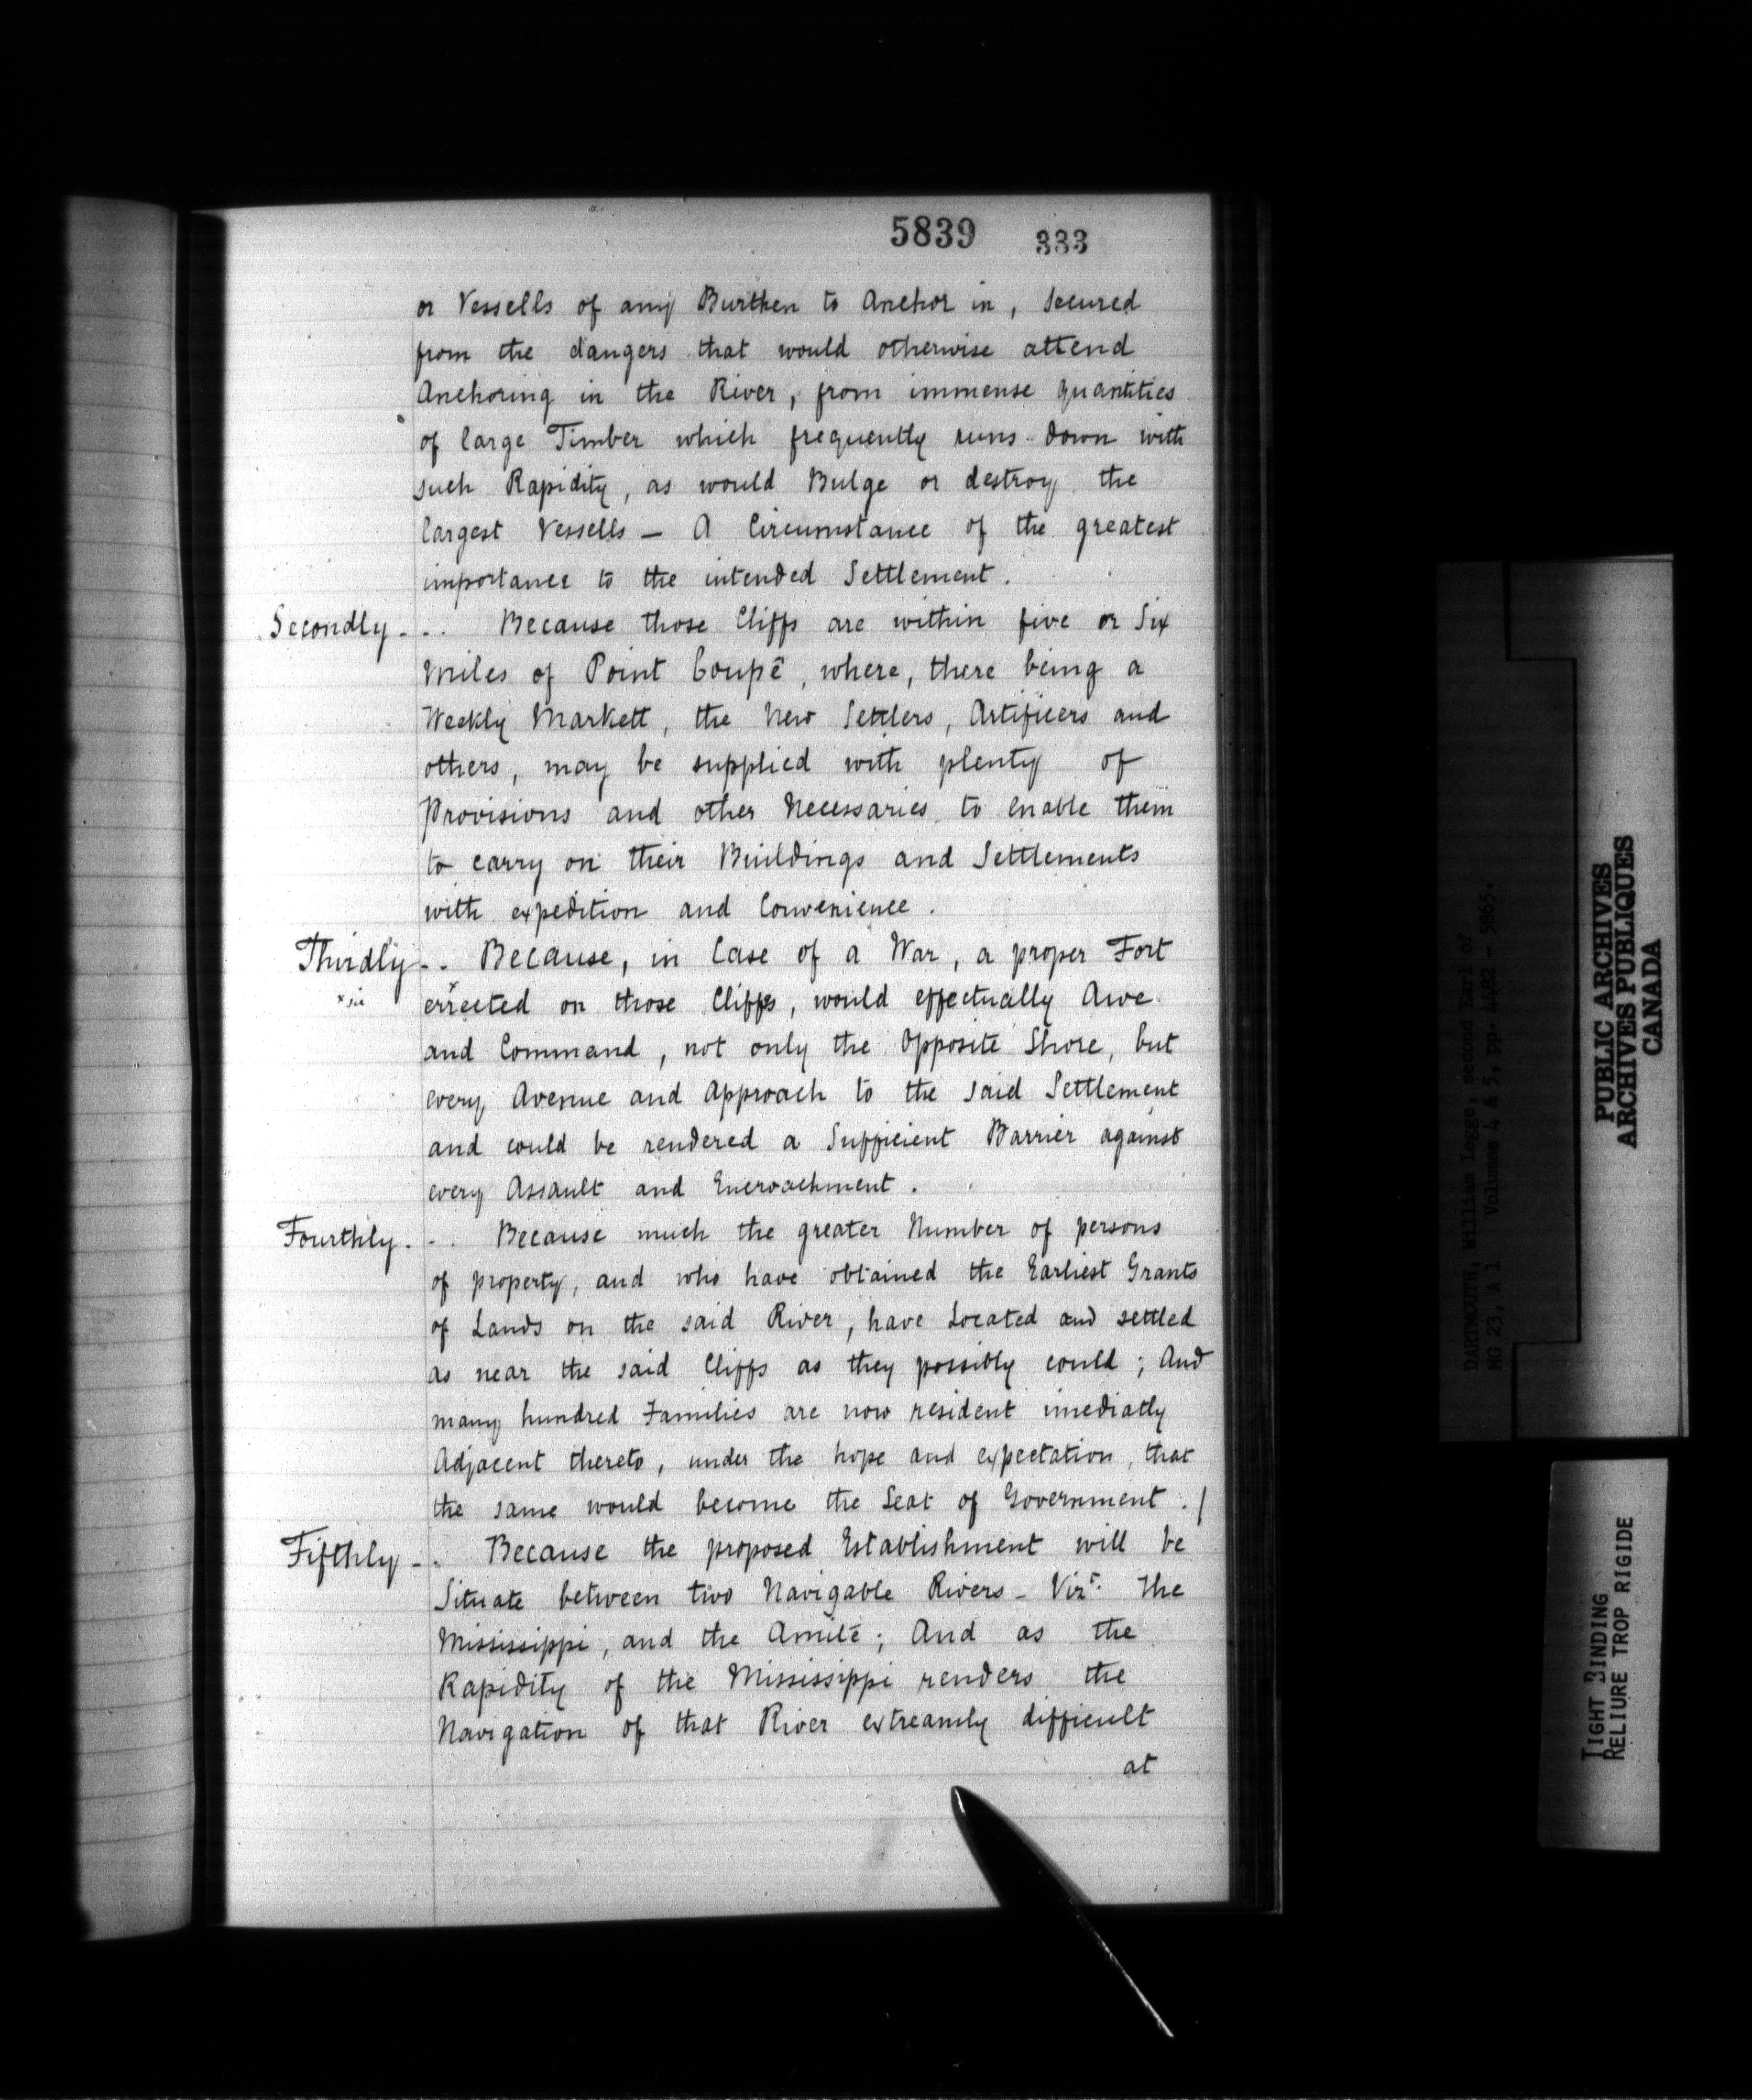 5839 333
or Vessells of any Burthen to Anchor in, Secured
from the dangers that would otherwise attend
Anchoring in the River, from immense quantities
of large Timber which frequently runs down with
such Rapidity, as would Bulge or destroy the
largest Vessells — A Circumstance of the greatest
importance to the intended Settlement.
Secondly - . . Because those Cliffs are within five or Six
Miles of Point Coupé, where, there being a
Weekly Markett, the New Settlers, Artificers and
others, may be supplied with plenty of
Provisions and other Necessaries to enable them
to carry on their Buildings and Settlements
with expedition and Convenience.
Thirdly - . Because, in Case of a War, a proper Fort
x sic errected on those Cliffs, would effectually Awe
and Command, not only the Opposite Shore, but
every Avenue and Approach to the said Settlement
and could be rendered a Sufficient Barrier against
every Assault and Encroachment.
Fourthly. - . Because much the greater Number of persons
of property, and who have obtained the Earliest Grants
of Lands on the said River, have Located and settled
as near the said Cliffs as they possibly could; And
many hundred Families are now resident imediatly
Adjacent thereto, under the hope and expectation, that
the same would become the Seat of Government. /
Fifthly - . Because the proposed Establishment will be
Situate between two Navigable Rivers - Vizt. The
Mississippi, and the Amité; And as the
Rapidity of the Mississippi renders the
Navigation of that River extreamly difficult
at
DARTMOUTH, William Legge, second Earl of
MG 23, A 1 Volumes 4 & 5, pp. 4482 - 5865.
PUBLIC ARCHIVES
ARCHIVES PUBLIQUES
CANADA
TIGHT BINDING
RELIURE TROP RIGIDE